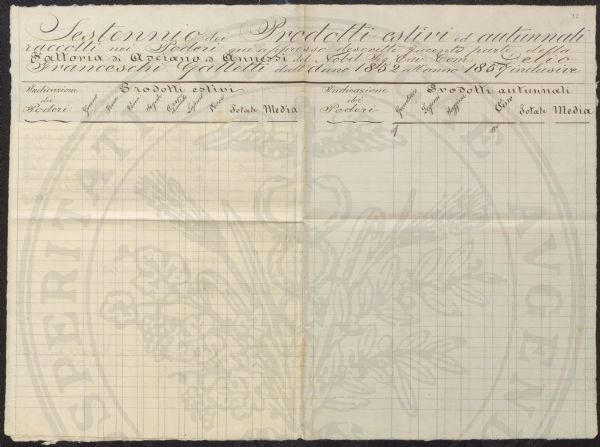 12
Sestennio dei Prodotti estivi ed autunnali
raccolti nei Poderi qui appresso descritti facenti parte della
Fattoria di Asciano e Annessi del Nobil Sig. Cav. Com. Lelio
Franceschi Galletti dall'anno 1852 all'anno 1857 inclusive
Indicazione dei Poderi
Prodotti estivi
Grano
Segale
Totale Media
Indicazione dei Poderi
Prodotti autunnali
Granturco
Saggina
Vino
Totale Media
SPERITATI AVGENDAE